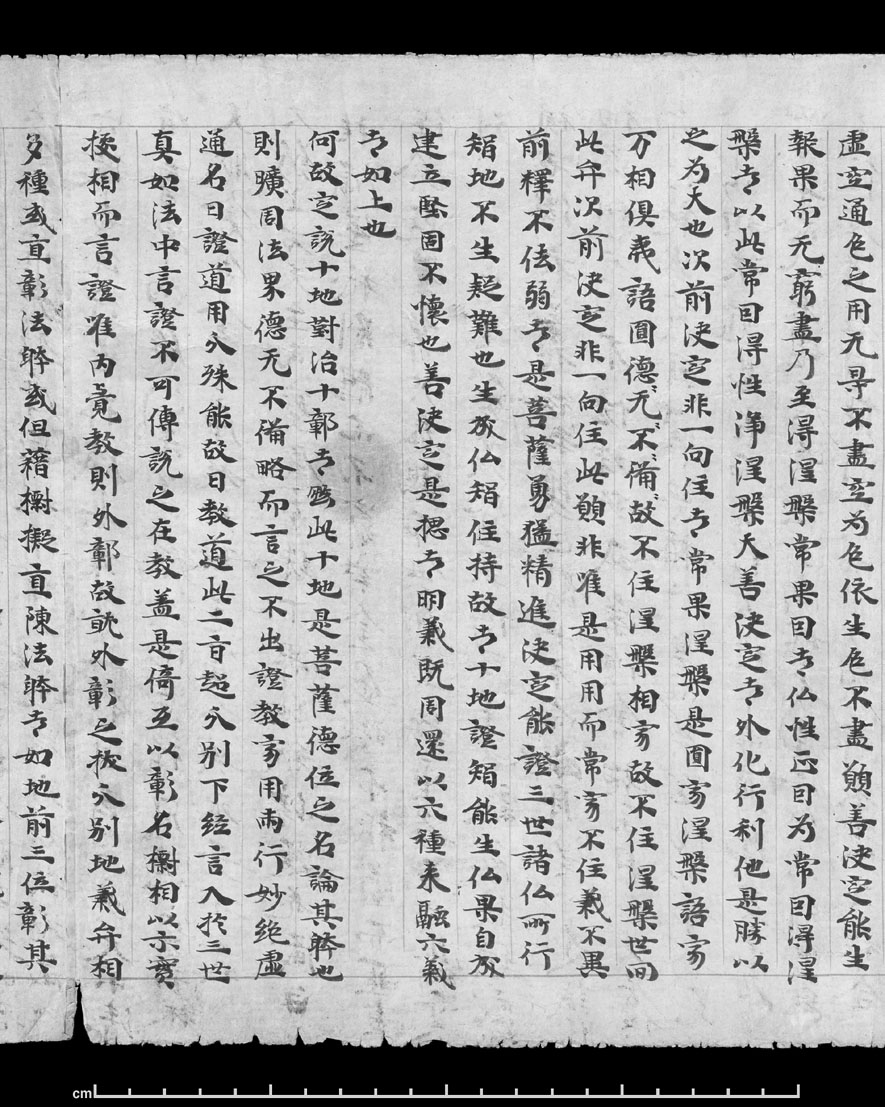 虛空通色之用无㝵不盡空為色依生色不盡願善決定能生
報果而无窮盡乃至得涅槃常果因者仏性正因为常因得涅
槃者以此常因得性淨涅槃大善決定者外化行利他是勝以
之为大也次前決定非一向住者常果涅槃是圓寂涅槃語寂
万相俱夷語圓德无不備故不住涅槃相寂故不住涅槃世間
此弁次前決定非一向住此願非唯是用用而常寂不住義不異
前釋不怯弱者是菩薩勇猛精進決定能證三世諸仏所行
智地不生疑難也生於仏智住持故者十地證智能生仏果自於
建立堅固不懷也善決定是揔者明義既周還以六種來融六義
者如上也
何故定說十地對治十鄣者然此十地是菩薩德位之名論其躰也
則曠周法界德无不備略而言之不出證教寂用兩行妙絕虛
通名曰證道用分殊能故曰教道此二言起分別下經言入於三世
真如法中言證不可傳說之在教蓋是倚互以彰名㯰相以示實
捘相而言證唯內覺教則外鄣故就外彰之拔分別地義弁相
多種或直彰法躰或但藉㯰擬直陳法躰者如地前三伍彰其